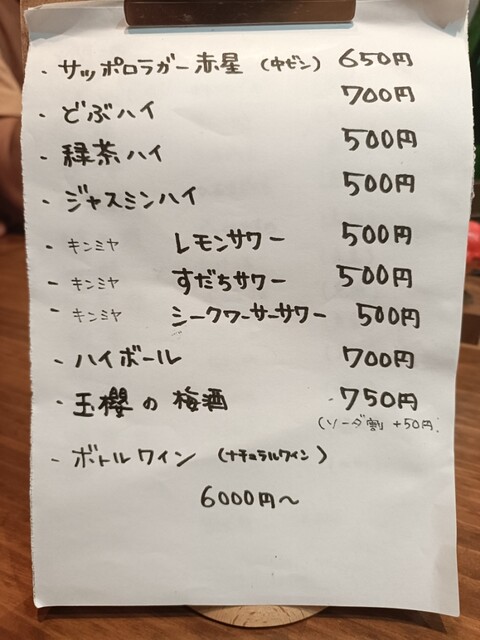 ・サッポロラガー赤星（中ビン） 650円
・どぶハイ 700円
・緑茶ハイ 500円
・ジャスミンハイ 500円
・キンミヤ レモンサワー 500円
・キンミヤ すだちサワー 500円
・キンミヤ シークワーサーサワー 500円
・ハイボール 700円
・玉櫻の梅酒 750円
（ソーダ割 +50円）
・ボトルワイン（ナチュラルワイン）
6000円〜